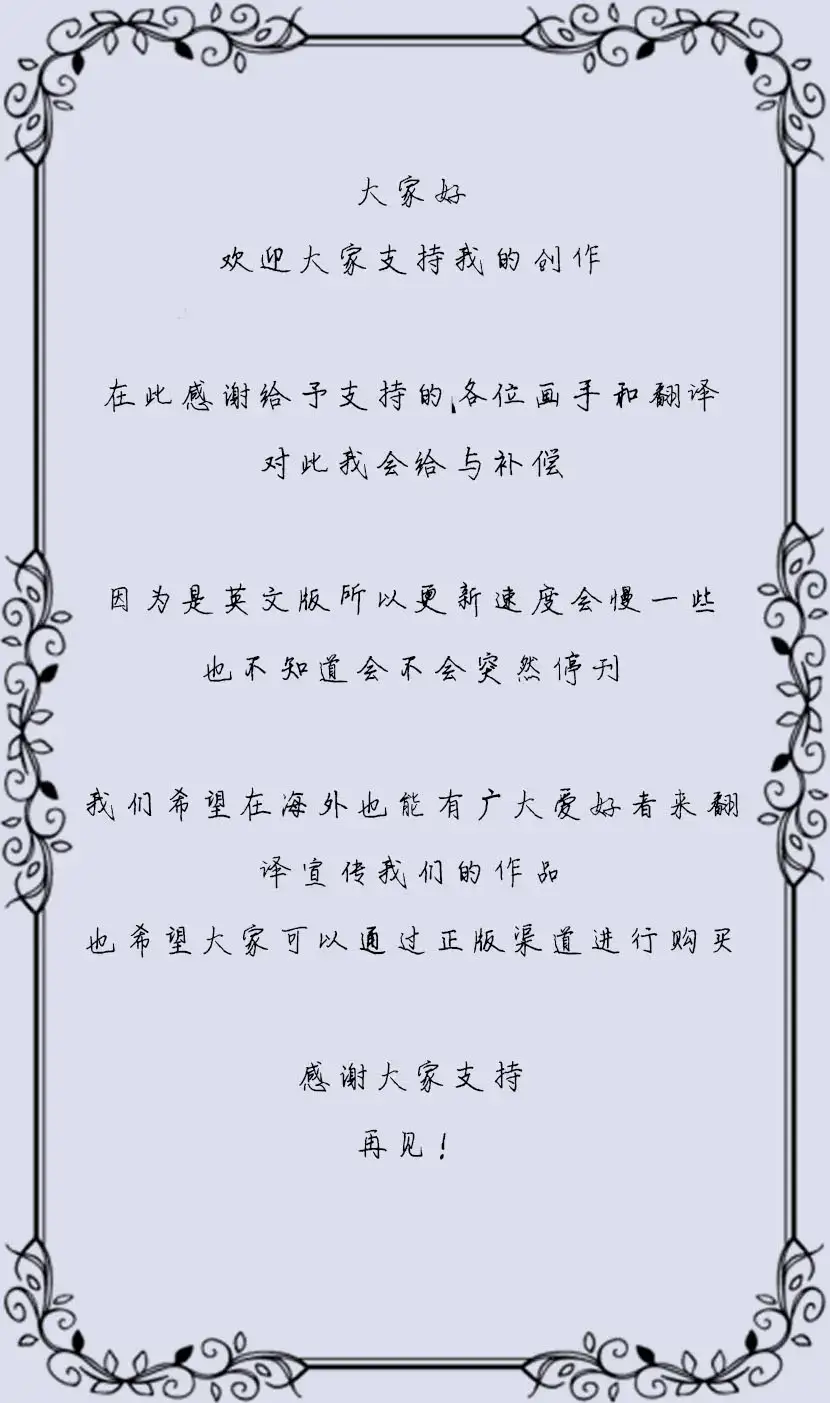 大家好
欢迎大家支持我的创作
在此感谢给予支持的、各位画手和翻译
对此我会给与补偿
因为是英文版所以更新速度会慢一些
也不知道会不会突然停刊
我们希望在海外也能有广大爱好者来翻
译宣传我们的作品
也希望大家可以通过正版渠道进行购买
感谢大家支持
再见！